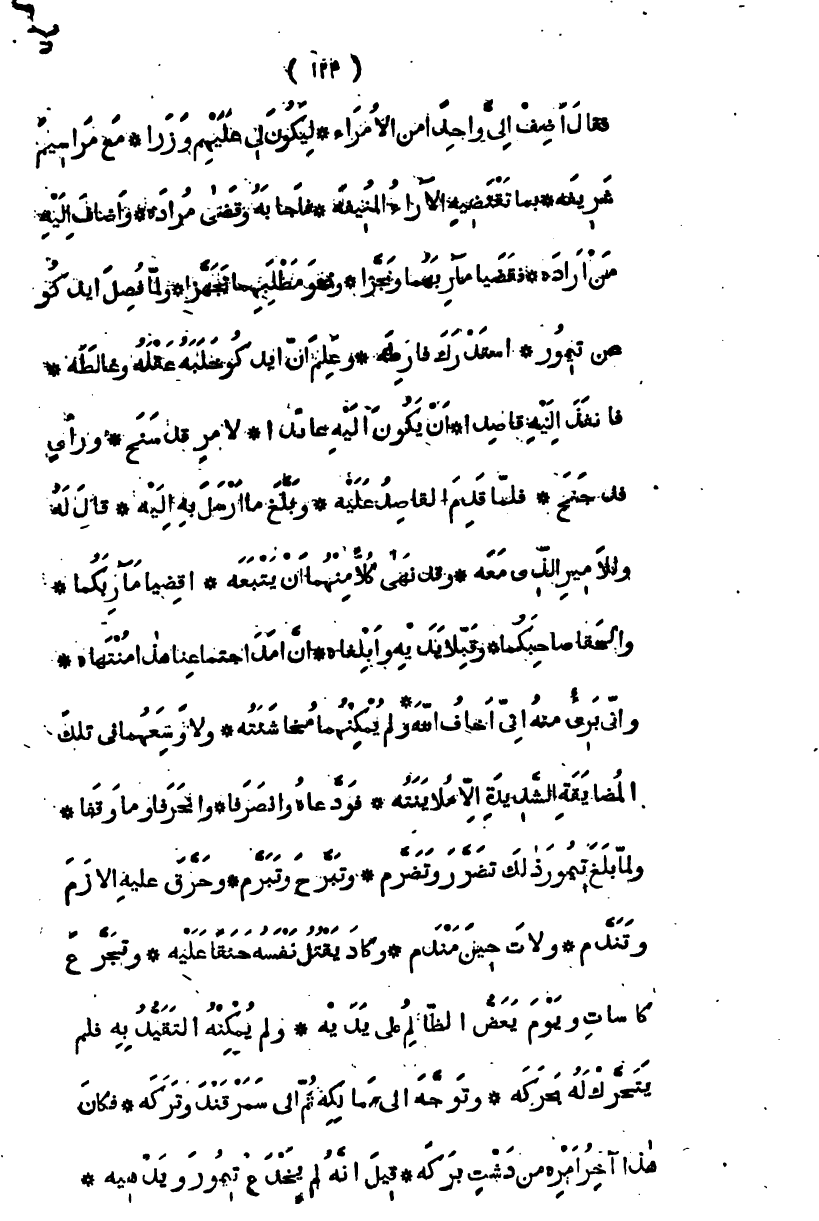 ( ١٢٣ )
فقالَ اَضِفْ اِلىَّ واحِدًا من الاُمَرَاء * لِيَكُونَ لى عَلَيْهِم وَزَرا * مَعَ مَرَاسِيمَ
شَرِيفَه * بما تَقْتَضِيهِ الآراءُ المُنِيفَة * فاَجابَهُ وَقَضٰى مُرادَه * وَاَضافَ اِلَيْهِ
مَنْ اَرَادَه * فقَضَيا مآرِبَهُما ونَجَّزا * ونحْوَ مَطْلَبِهِما تَجَهَّزا * ولمّا فَصَلَ ايدكو
عن تيمُور * استَدْرَكَ فارِطَه * وعَلِمَ اَنّ ايدكو خَلَبَهُ عَقْلَهُ وغالَطَه *
فانفَذَ اِلَيْهِ قاصِدا * اَنْ يَكُونَ اِلَيْهِ عائدا * لامرٍ قد سَنَح * ورأيٍ
قد جَنَح * فلمّا قَدِمَ القاصِدُ عَلَيْه * وبَلَّغَ ما اَرْسَلَ بِهِ اِلَيْه * قالَ لَهُ
وللاَميرِ الذّى مَعَه * وقد نَهٰى كُلاًّ مِنْهُما اَنْ يَتْبَعَه * اقضِيا مَآرِبَكُما *
والحَقا صاحِبَكُما * وقَبِّلا يَدَيْهِ وابْلِغاه * انَّ اَمَدَ اجتماعِنا هذا مُنْتَهاه *
وانّى بَرِىءٌ منهُ اِنّى اَخافُ اللّٰهَ * ولم يُمْكِنْهُما مُخاشَنَتُه * ولا وَسِعَهُما فى تلكَ
المُضايَقَةِ الشَّدِيدَةِ اِلّا مُلايَنَتُه * فوَدَّعاهُ وانصَرَفا * وانحَرَفا وما وَقَفا *
ولمّا بَلَغَ تِيمُورَ ذٰلكَ تضَرَّرَ وتَضَرَّم * وتبَرَّحَ وتَبَرَّم * وحَرَّقَ عليهِ الاَرَمَ
وتَنَدَّم * ولاتَ حِينَ مَنْدَم * وكادَ يَقْتُلُ نَفْسَهُ حَنَقًا عَلَيْه * وتجَرَّعَ
كاساتِ ويَوْمَ يَعَضُّ الظّالِمُ على يَدَيْه * ولم يُمْكِنْهُ التقَيُّدُ بِهِ فلم
يَتَحَرَّكْ لَهُ بحَرَكَه * وتَوجَّهَ الى مَمالِكِهِ ثُمّ الى سَمَرْقَنْدَ وتَرَكَه * فكانَ
هٰذا آخِرُ اَمْرِهِ من دَشْتِ بَرَكَه * قِيلَ اَنّهُ لم يَخْدَعْ تِيمُورَ ويُدْهِيه *